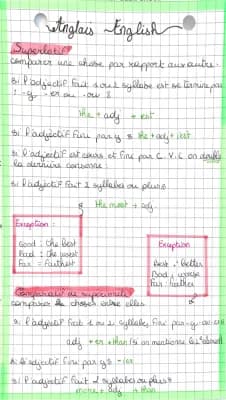 Anglais ~ English
Superlatif
comparer une chose par rapport aux autre.
si l'adjectif fait 1 ou 2 syllabe est se termine par
: -y - er ou - ow 8
the + adj + est
si l'adjectif fini par y 8 the + adj + iest
si l'adjectif est cours et fini par C.V.C on double
la dernière consonne :
si l'adjectif fait 2 syllabes ou plus 8
8 the most + adj.
Exception :
Good : the best
Bad : the worst
Far : farthest
Exception
Best : better
Bad : worse
Far : farther
Comparatif de supériorité
comparer choses entre elles
si l'adjectif fait 1 ou 2 syllabe fini par -y -ow -er
adj - er + than
si l'adjectif fini par y 8 - ier
si l'adjectif fait 2 syllabes ou plus 8
more + adj + than